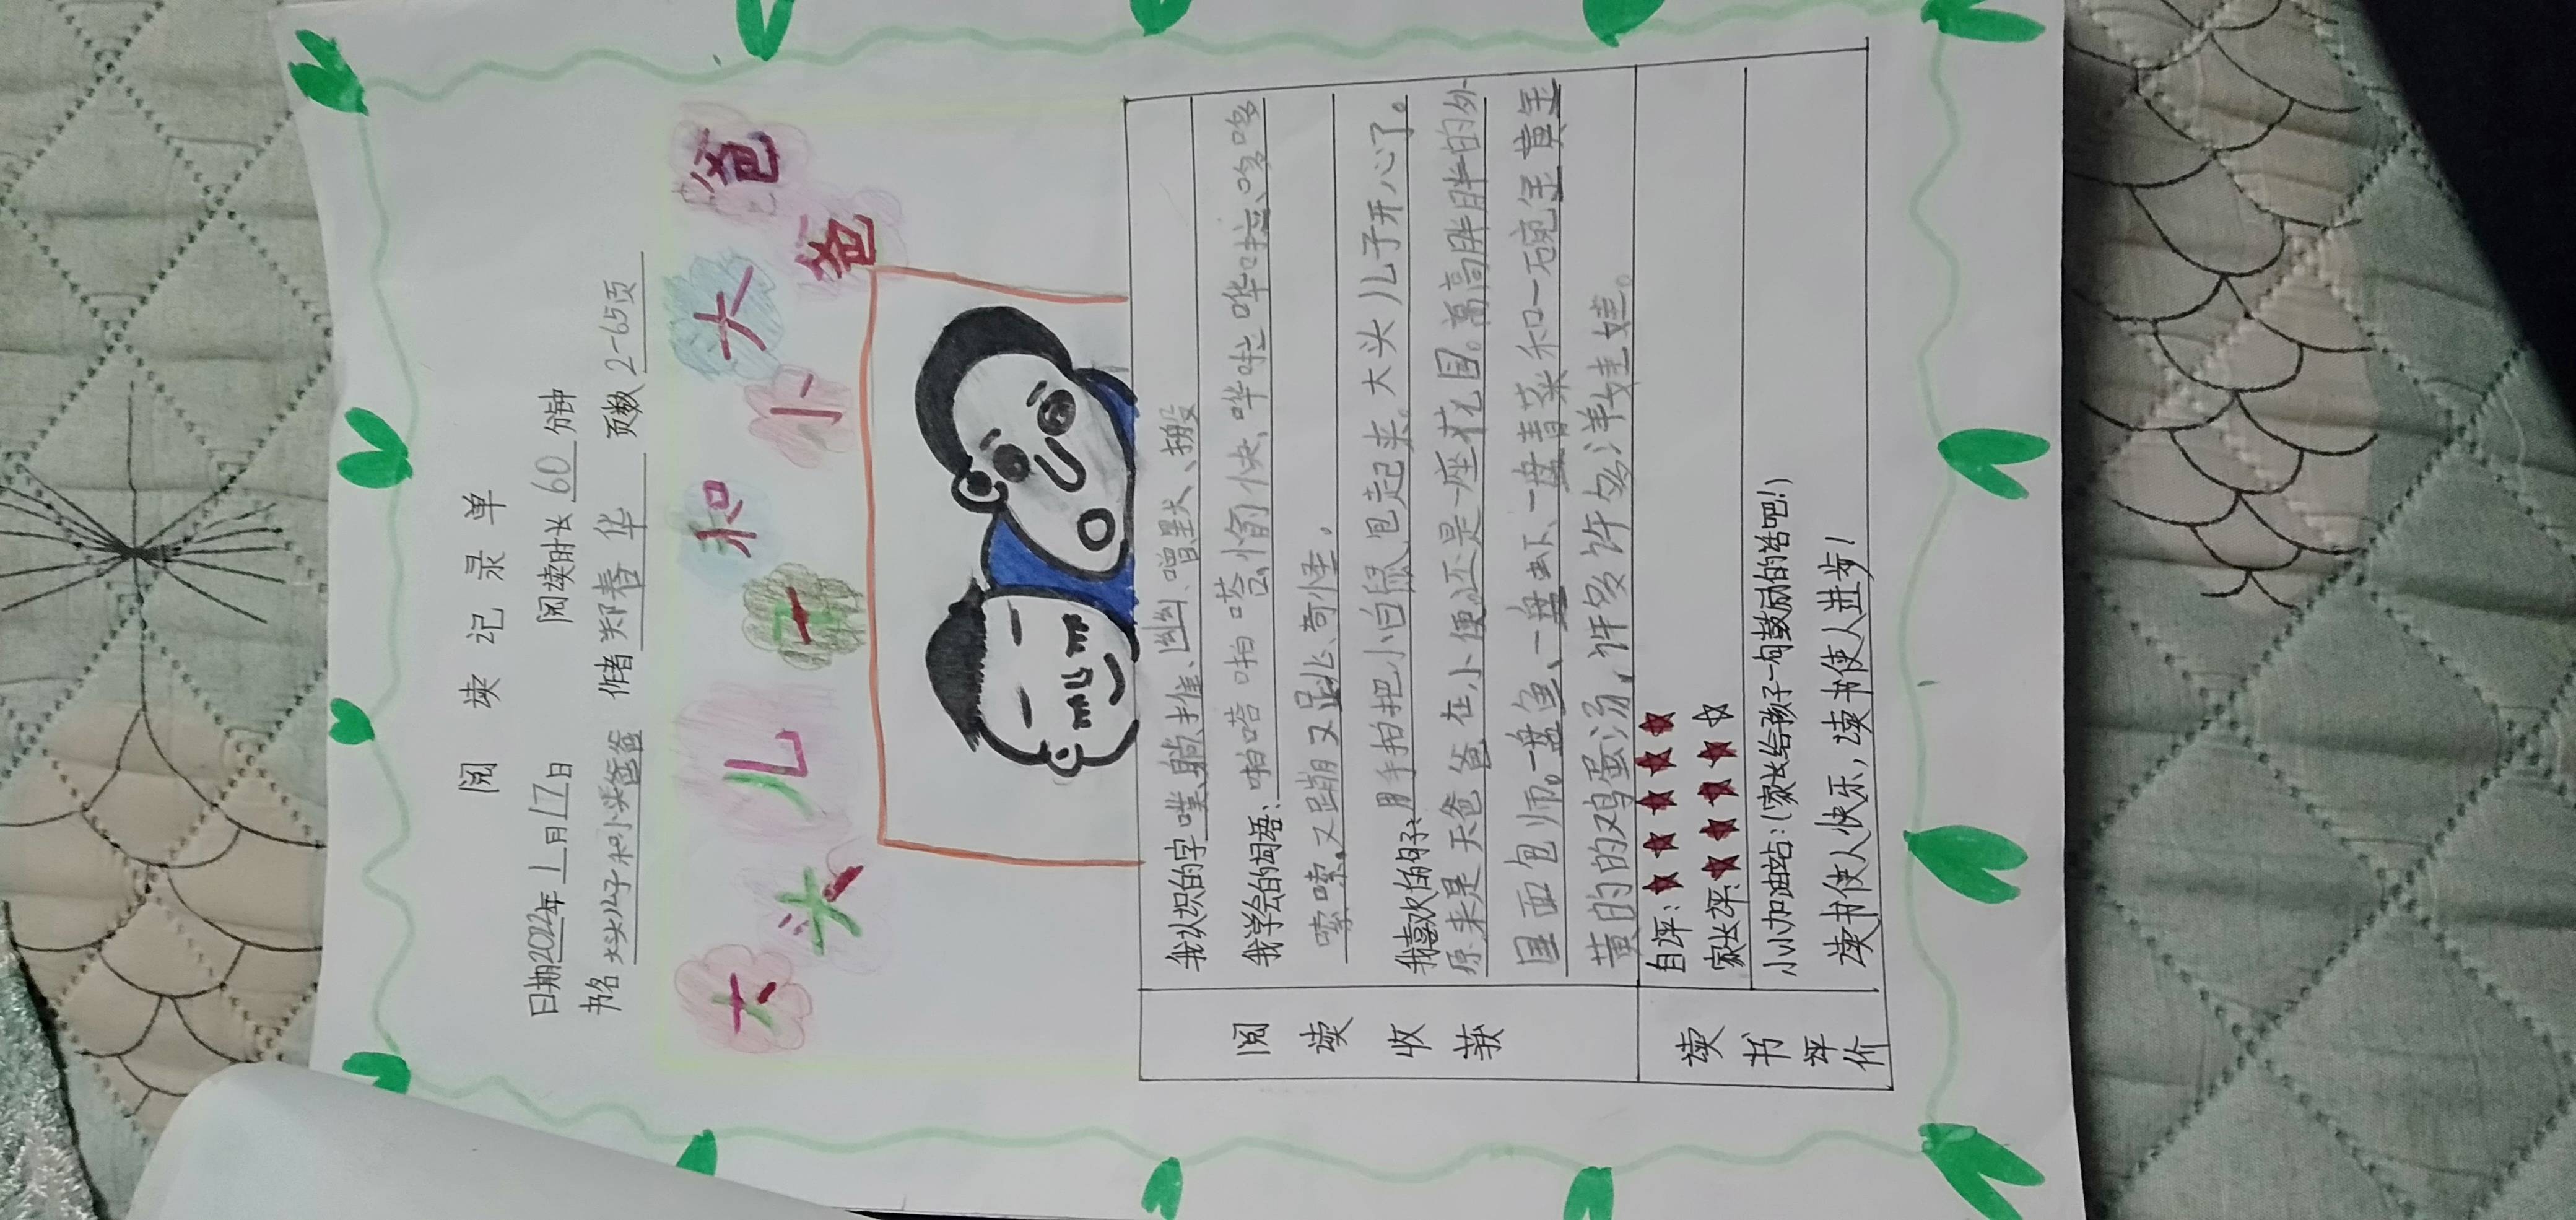 阅读记录单
日期2022年1月17日 阅读时长60分钟
书名大头儿子和小头爸爸 作者郑春华 页数2-65页
大头儿子和小大爸爸
阅读收获
我认识的字噗、躺、推、幽、噌、默、搬
我学会的词语:啪嗒啪嗒愉快、哗啦哗啦、哆哆
嗦嗦、又蹦又跳、奇怪。
我喜欢的句子:用手拍把小白鼠甩起来。大头儿子开心了。
原来是天爸爸在小便还是一座花园。高高胖胖的外
国面包师。一盘鱼、一盘虾、一盘青菜和一碗金黄金
黄的的鸡蛋汤,许多许多洋娃娃。
读书评价
自评:★★★★★
家长评:★★★★☆
小小加油站:(家长给孩子一句鼓励的话吧!)
读书使人快乐,读书使人进步!